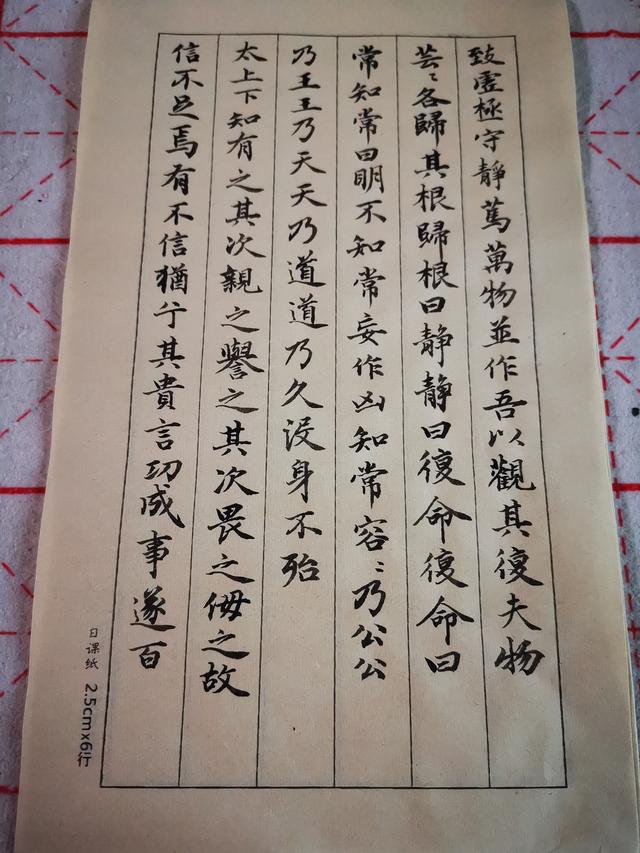 致虛極守靜篤萬物並作吾以觀其復夫物
芸〻各歸其根歸根曰靜靜曰復命復命曰
常知常曰明不知常妄作凶知常容〻乃公公
乃王王乃天天乃道道乃久沒身不殆
太上下知有之其次親之譽之其次畏之侮之故
信不足焉有不信猶兮其貴言功成事遂百
日课纸 2.5cmx6行